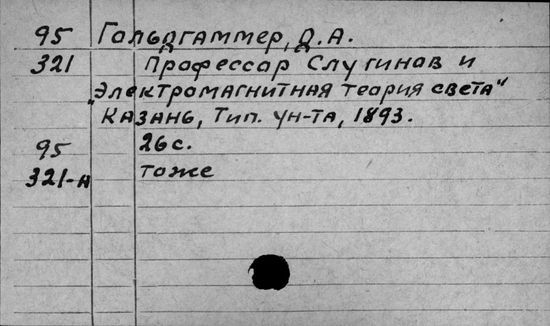 95 Гольдгаммер, Д.А.
321 Профессор Слугинов и
„Электромагнитная теория света“
Казань, Тип. ун-та, 1893.
95 26 с.
321-н тоже